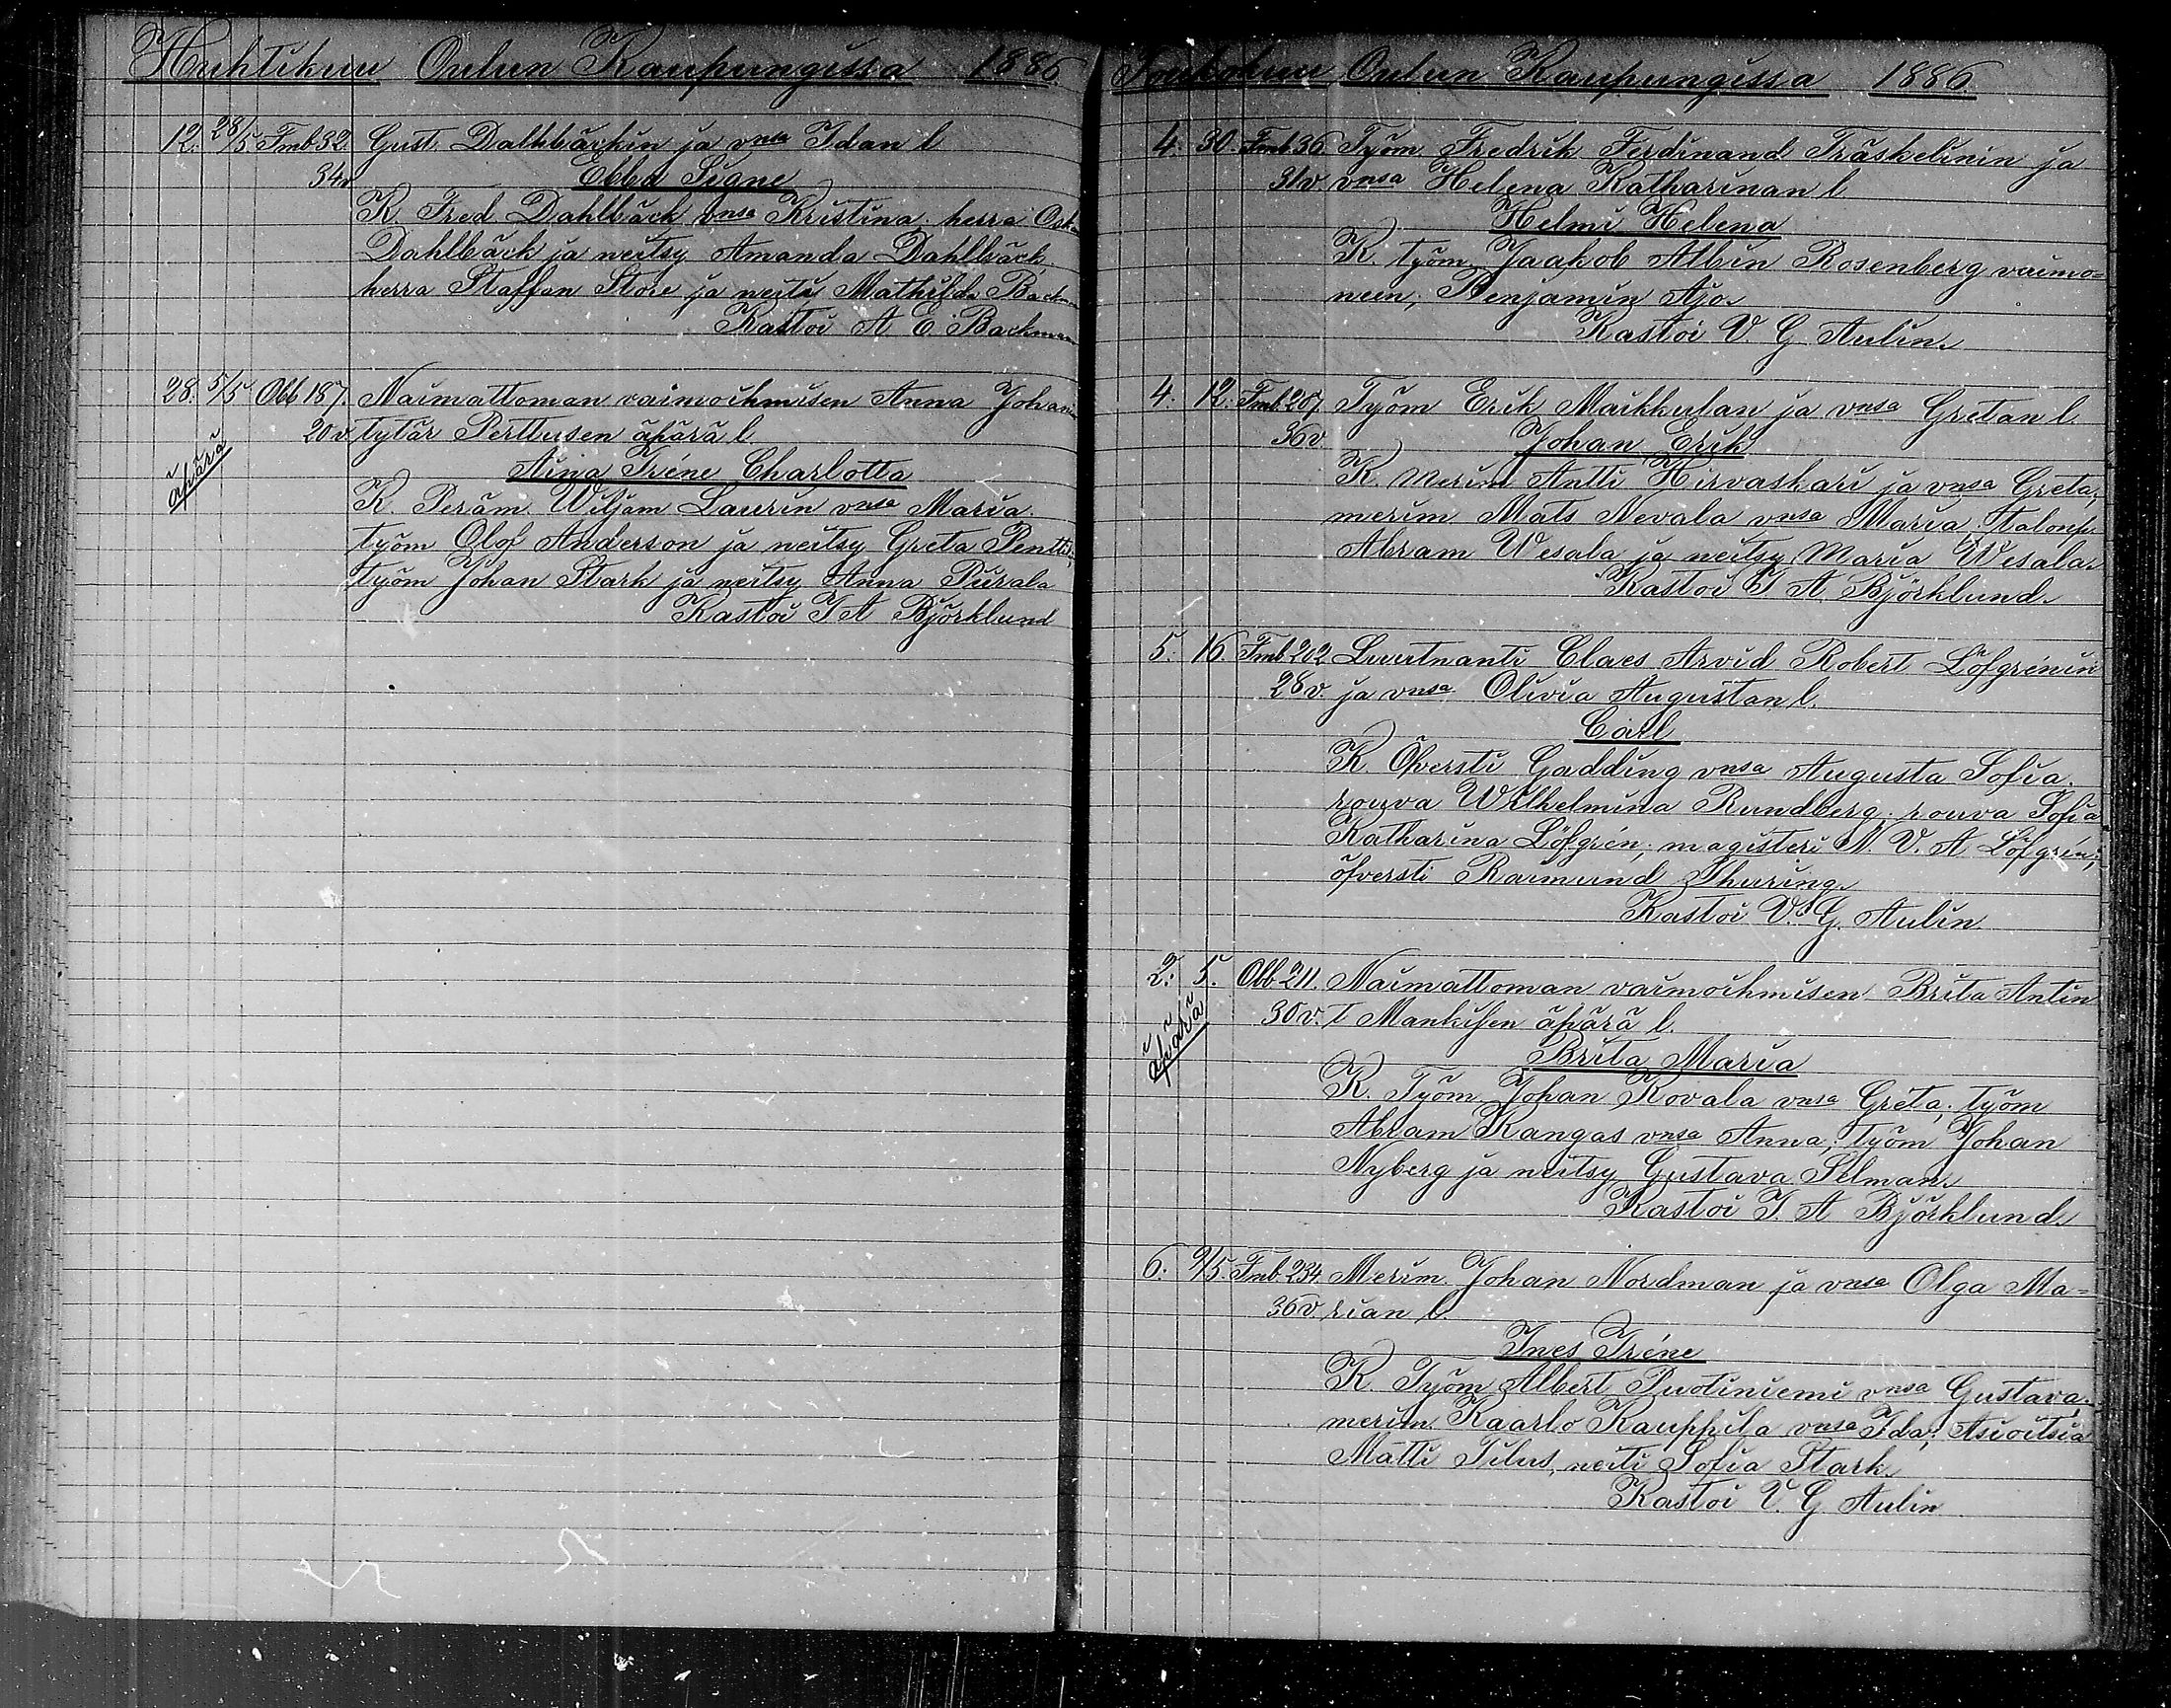 Huhtikuu Oulun Kaupungissa 1886
12. 28/5 Fmb 32 Gust. Dalhbäckin ja vnsa Idan l
34v Ebba Signe
K. Fred Dahlbäck vnsa Kristina; herra Osk
Dahlbäck ja neitsy Amanda Dahlbäck
herra Staffan Store ja neiti Mathilda Backman
Kastoi A. E. Backman
28. 5/5 Obb 187. Naimattoman vaimoihmisen Anna Johan
20v tytär Perttusen äpärä l
äpärä
Aina Iréne Charlotta
K. Peräm. Wiljam Laurin vnsa Maria
työm Olof Anderson ja neitsy Greta Pentti;
työm Johan Stark ja neitsy Anna Piirala
Kastoi I A Björklund
Toukokuu Oulun Kaupungissa 1886
4. 30. Fmb 36 Työm. Fredrik Ferdinand Träskelinin ja
31v. vnsa Helena Katharinan l
Helmi Helena
K. työm. Jaakob Albin Rosenberg vaimo=
neen; Benjamin Ajo.
Kastoi V. G. Aulin.
4. 12. Fmb 207 Työm Erik Maikkulan ja vnsa Gretan l.
36v Johan Erik
K. merim Antti Hirvaskari ja vnsa Greta;
merim. Mats Nevala vnsa Maria; talonp.
Abram Wesala ja neitsy Maria Wesala.
Kastoi I A. Björklund.
5. 16. Fmb 202 Luutnanti Claes Arvid Robert Löfgrénin
28v. ja vnsa Olivia Augustan l.
Carl
K. Öfversti Gadding vnsa Augusta Sofia;
rouva Wilhelmina Rundberg; rouva Sofia
Katharina Löfgrén; magisteri N. V. A. Löfgrén;
öfversti Raimund Thuring.
Kastoi V. G. Aulin.
2. 5. Obb 211. Naimattoman vaimoihmisen Brita Antin
30v. t Mankisen äpärä l.
äpärä
Brita Maria
K. Työm Johan Kovala vnsa Greta; työm
Abram Kangas vnsa Anna; työm Johan
Nyberg ja neitsy Gustava Selman.
Kastoi I. A Björklund.
6. 9/5 Fmb. 234. Merim. Johan Nordman ja vnsa Olga Ma=
36v. rian l.
Ines Iréne
K. Työm Albert Puotiniemi vnsa Gustava;
merim. Kaarlo Kauppila vnsa Ida; Asioitsia
Matti Tilus, neiti Sofia Stark.
Kastoi V. G Aulin